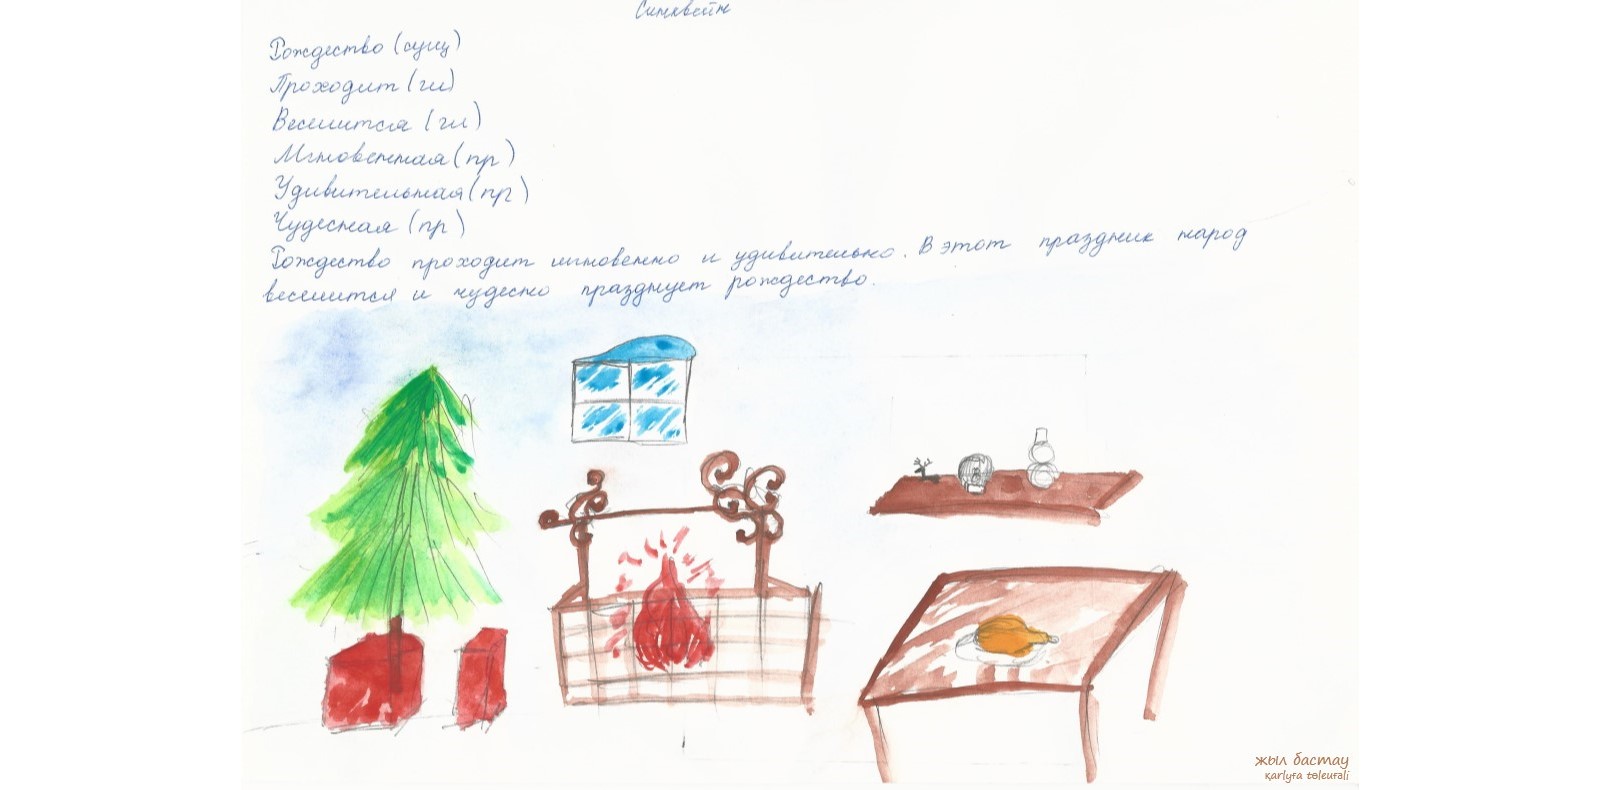 Синквейн
Рождество (сущ)
Проходит (гл)
Веселится (гл)
Мгновенная (пр)
Удивительная (пр)
Чудесная (пр)
Рождество проходит мгновенно и удивительно. В этот праздник народ
веселится и чудесно празднует рождество.
жыл бастау
qarlyǵa tóleuǵali